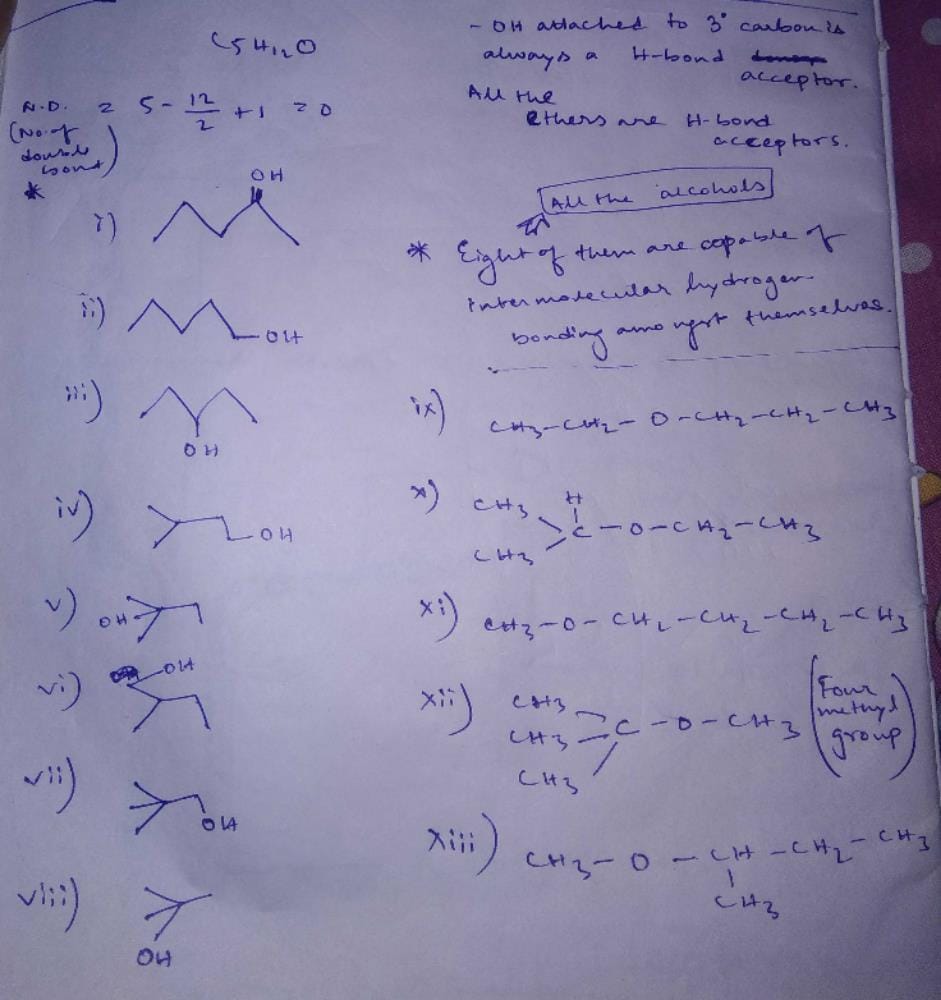 C5H12O
N.D. = 5 - 12/2 + 1 = 0
(No. of double bond)
*
i)
OH
ii)
OH
iii)
OH
iv)
OH
v)
OH
vi)
OH
vii)
OH
viii)
OH
- OH attached to 3° carbon is
always a H-bond
acceptor.
All the
Ethers are H-bond
acceptors.
All the alcohols
* Eight of them are capable of
intermolecular hydrogen
bonding amongst themselves.
ix) CH3-CH2-O-CH2-CH2-CH3
x) CH3 H
C-O-CH2-CH3
CH3
xi) CH3-O-CH2-CH2-CH2-CH3
xii) CH3
CH3 C-O-CH3
CH3
(Four
methyl
group)
xiii) CH3-O-CH-CH2-CH3
CH3